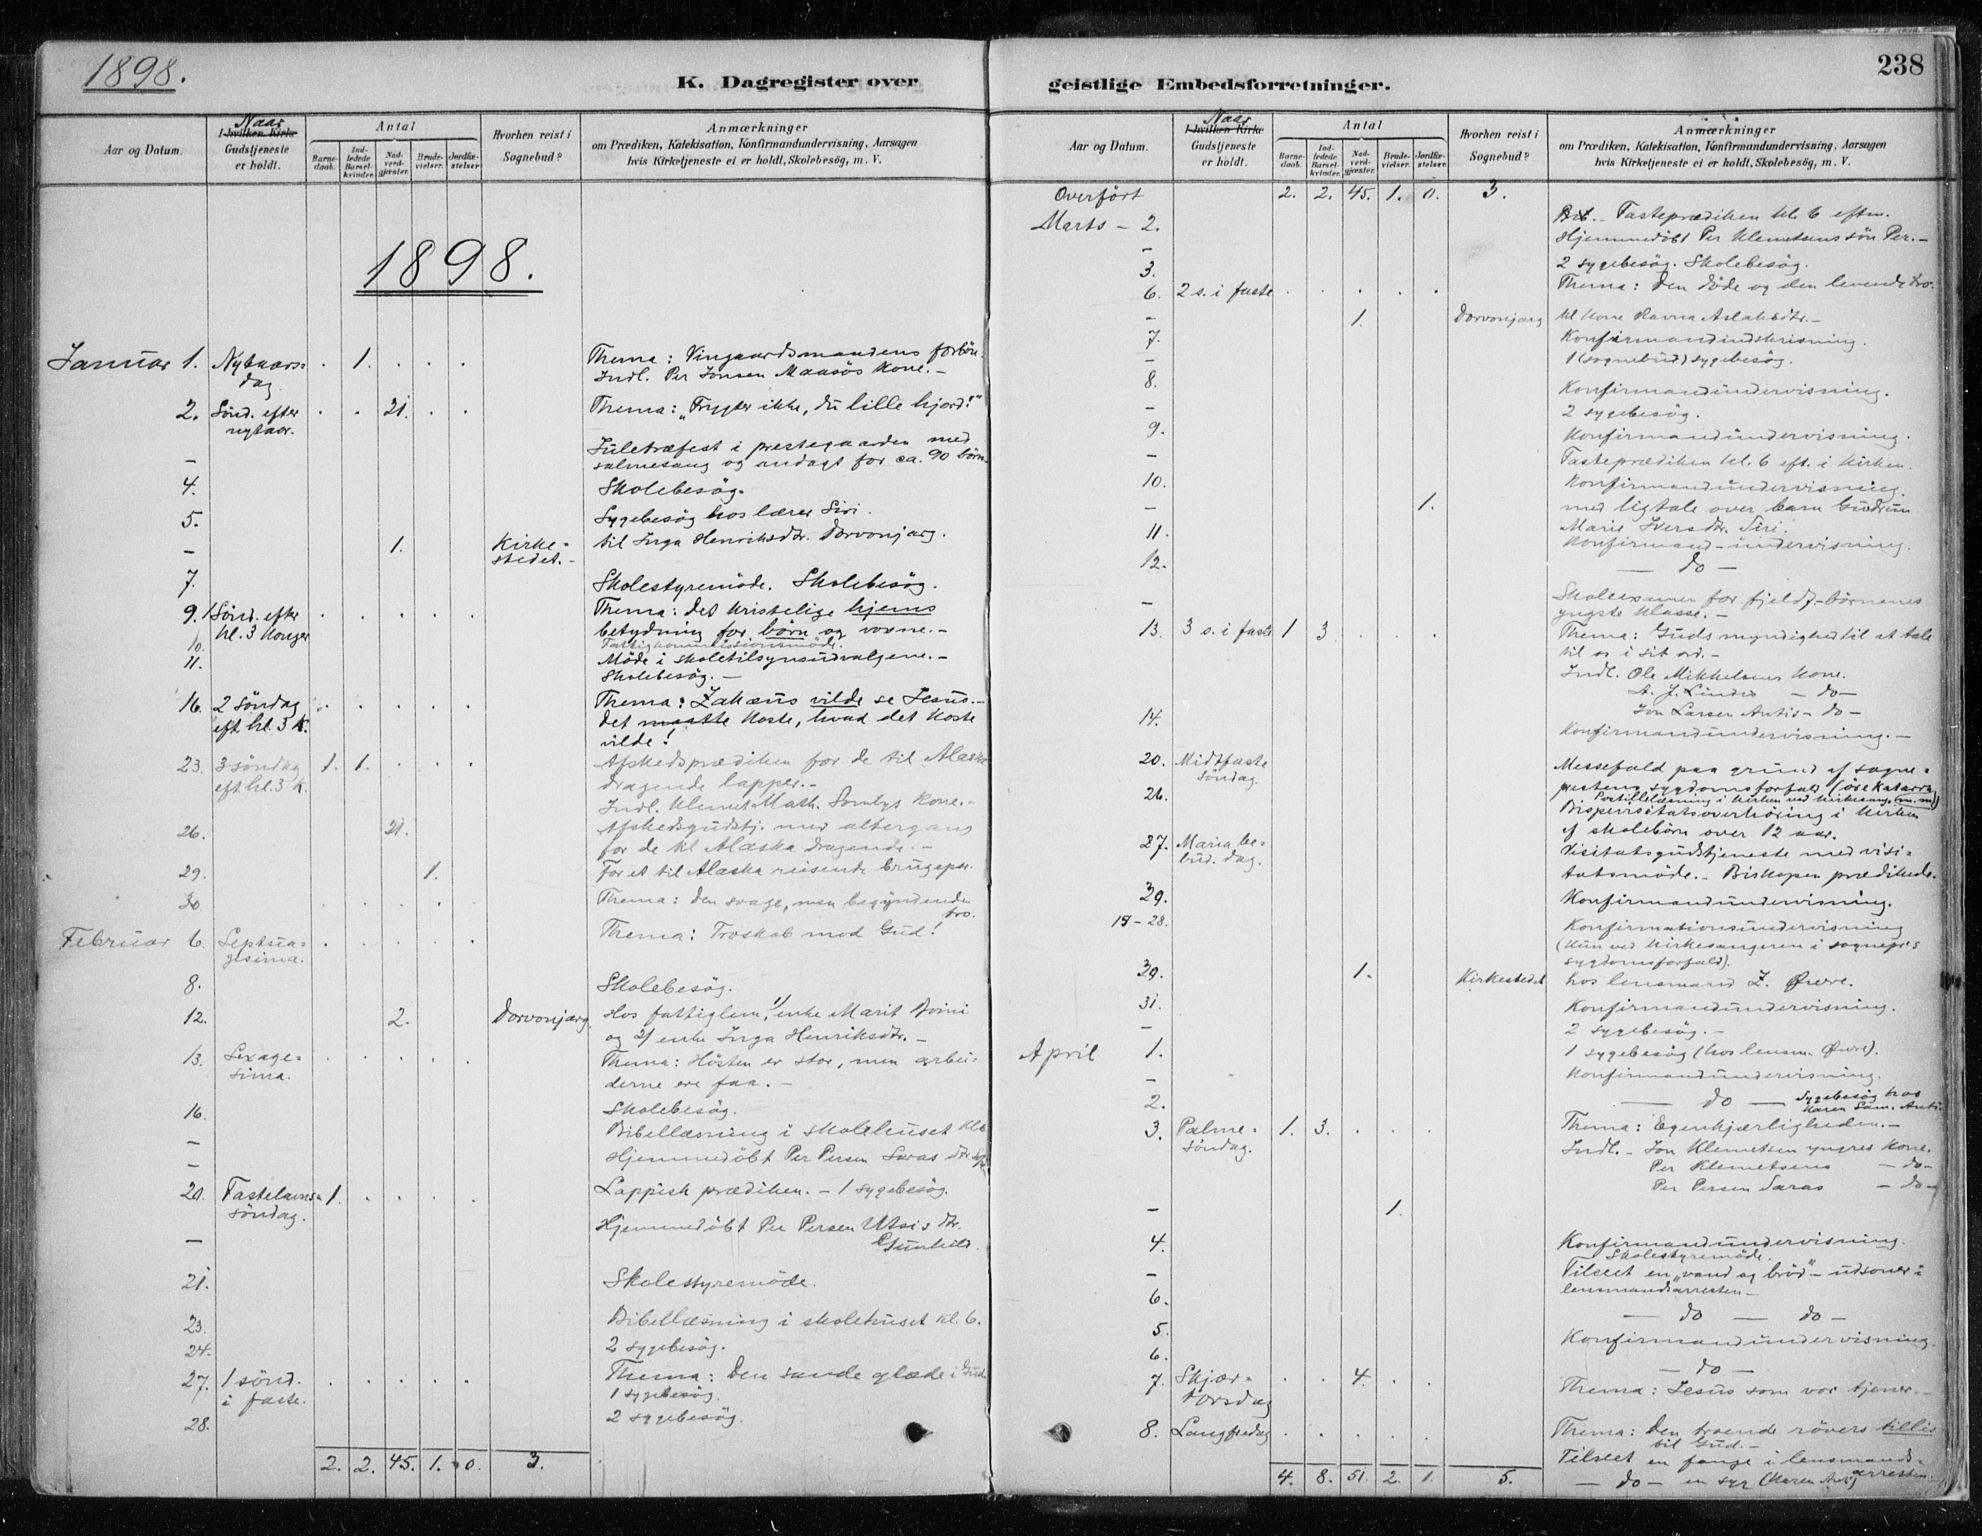 1898.
K. Dagregister over
Aar og Datum.
Naar
I hvilken Kirke
Gudstjeneste
er holdt.
Antal
Barne-
daab.
Ind-
ledede
Barsel-
kvinder.
Nad-
verd-
gjæster.
Brude-
vielser.
Jordfæ-
stelser.
Hvorhen reist i
Sognebud?
Anmærkninger
om Prædiken, Katekisation, Konfirmandundervisning, Aarsagen
hvis Kirketjeneste ei er holdt, Skolebesøg, m. V.
1898.
Januar 1. Nytaars= . 1. . . . Thema: Vingaardsmandens forbön.
dag. Indl. Per Jonsen Maasös Kone.-
2. Sönd. efter . . 21. . . Thema: "Frygter ikke, du lille hjord!"
nytaar.
– Juletræfest i prestegaarden med
salmesang og andagt for ca. 90 börn.
4. Skolebesög.
5. Sygebesög hos lærer Siri.
– 1. Kirke= til Inga Henriksdtr. Dorvonjarg.
stedet.-
7. Skolestyremöde. Skolebesög.
9. Sönd. efter . . . . . Thema: Det kristelige hjems
hl. 3 Konger betydning for börn og voxne.-
10. Fattigkommissionsmöde.
11. Möde i skoletilsynsudvalgene.-
Skolebesög.-
16. 2 söndag . . . . . Thema: Zakæus vilde se Jesus.-
eft. hl. 3 K. Det maatte koste, hvad det koste
vilde!
23. 3 söndag 1. 1. . . . Afskedsprædiken for de til Alaska
eft. hl. 3 K. dragende lapper.-
Indl. Klemet Math. Sombys Kone.-
26. 21. Afskedsgudstj. med altergang
for de til Alaska dragende.-
29. 1. For et til Alaska reisende brudepar.
30 . . . . . Thema: Den svage, men begyndende
tro.
Februar 6. Septua= . . . . . Thema: Troskab mod Gud!
gesima.
8. Skolebesög.
12. 2. Dorvonjarg. Hos fattiglem, 1/ enke Marit Boini
og 2/ enke Inga Henriksdtr.-
13. Sexage= . . . . . Thema: Hösten er stor, men arbei-
sima. derne ere faa.-
16. Skolebesög.
– Bibellæsning i skolehuset kl. 6
– Hjemmedöbt Per Persen Saras dtr.
20. Fastelavns= 1. . . . . Lappisk prædiken.- 1 sygebesög.
söndag.
– Hjemmedöbt Per Persen Utsis dtr.
Gunhild.
21. Skolestyremöde.
23. Bibellæsning i skolehuset kl. 6.
24. 2 sygebesög.
27. 1 sönd. . . . . . Thema: Den sande glæde i Gud.
i faste. 1 sygebesög.
28. 2 sygebesög.
2. 2. 45. 1. 0. 3.
238
geistlige Embedsforretninger.
Aar og Datum.
Naar
I hvilken Kirke
Gudstjeneste
er holdt.
Antal
Barne-
daab.
Ind-
ledede
Barsel-
kvinder.
Nad-
verd-
gjæster.
Brude-
vielser.
Jordfæ-
stelser.
Hvorhen reist i
Sognebud?
Anmærkninger
om Prædiken, Katekisation, Konfirmandundervisning, Aarsagen
hvis Kirketjeneste ei er holdt, Skolebesög, m. V.
Overfört 2. 2. 45. 1. 0. 3.
Marts – 2. Fasteprædiken kl. 6 eftm.
– Hjemmedöbt Per Klemetsens sön Per.-
3. 2 sygebesög. Skolebesög.
6. 2 s. i faste . . . . . Thema: Den döde og den levende tro.
– 1. Dorvonjarg til kone Ravna Aslaksdtr.-
7. Konfirmandindskrivning.
– 1 (sognebud) sygebesög.
8. Konfirmandundervisning.
– 2 sygebesög.
9. Konfirmandundervisning.
– Fasteprædiken kl. 6 eft. i Kirken.
10. Konfirmandundervisning.
– 1. med ligtale over barn Gudrun
Marie Iversdtr. Siri.
11. Konfirmand-undervisning.
12. – do –
– Skoleexamen for fjeldf-börnenes
yngste Klasse.-
13. 3 s. i faste 1 3 . . . Thema: Guds myndighed til at tale
til os i sit ord.-
Indl. Ole Mikkelsens kone.
A. J. Lindis – do –
Jon Larsen Antis – do –
14. Konfirmandundervisning.-
20. Midtfaste Messefald paa grund af sogne=
söndag. prestens sygdomsforfald (öre Katarrh)
Portillelæsning i kirken ved kirkesang. m. m.
26. Bisperisitatsoverhöring i Kirken
af skolebörn over 12 aar.
27. Maria be- Visitatsgudstjeneste med visi=
bud. dag. tatsmöde.- Biskopen prædikede.
29. Konfirmandundervisning.
19–28. Konfirmationsundervisning
(kun ved Kirkesangeren i sognepr's
sygdomsforfald).
30. 1. Kirkestedet hos lensmand Z. Øwre.
31. Konfirmandundervisning.
– 2 sygebesög.-
April 1. 1 sygebesög (hos lensm. Øwre).
– Konfirmandundervisning.
2. – do – Sygebesög hos
Karen Sam. Antis.
3. Palme= 1. 3. . . . Thema: Egenkjærligheden.-
söndag. Indl.- Jon Klemetsen yngres kone.
Per Klemetsens – do –
Per Persen Saras – do –
– 1.
4. Konfirmandundervisning.
Skolestyremöde.
– Tilseet en "vand og bröd"-udsoner i
lensmandsarresten–
6. – do – do –
5. Konfirmandundervisning.
6. – do –
7. Skjær= . . 4. . . Thema: Jesus som vor tjener.-
torsdag
8. Langfredag . . . . . Thema: Den troende rövers tillid
til Gud.-
Tilseet en fange i lensmands=
arresten.
– do – en syg (Karen Antis)
4. 8. 51. 2. 1. 5.